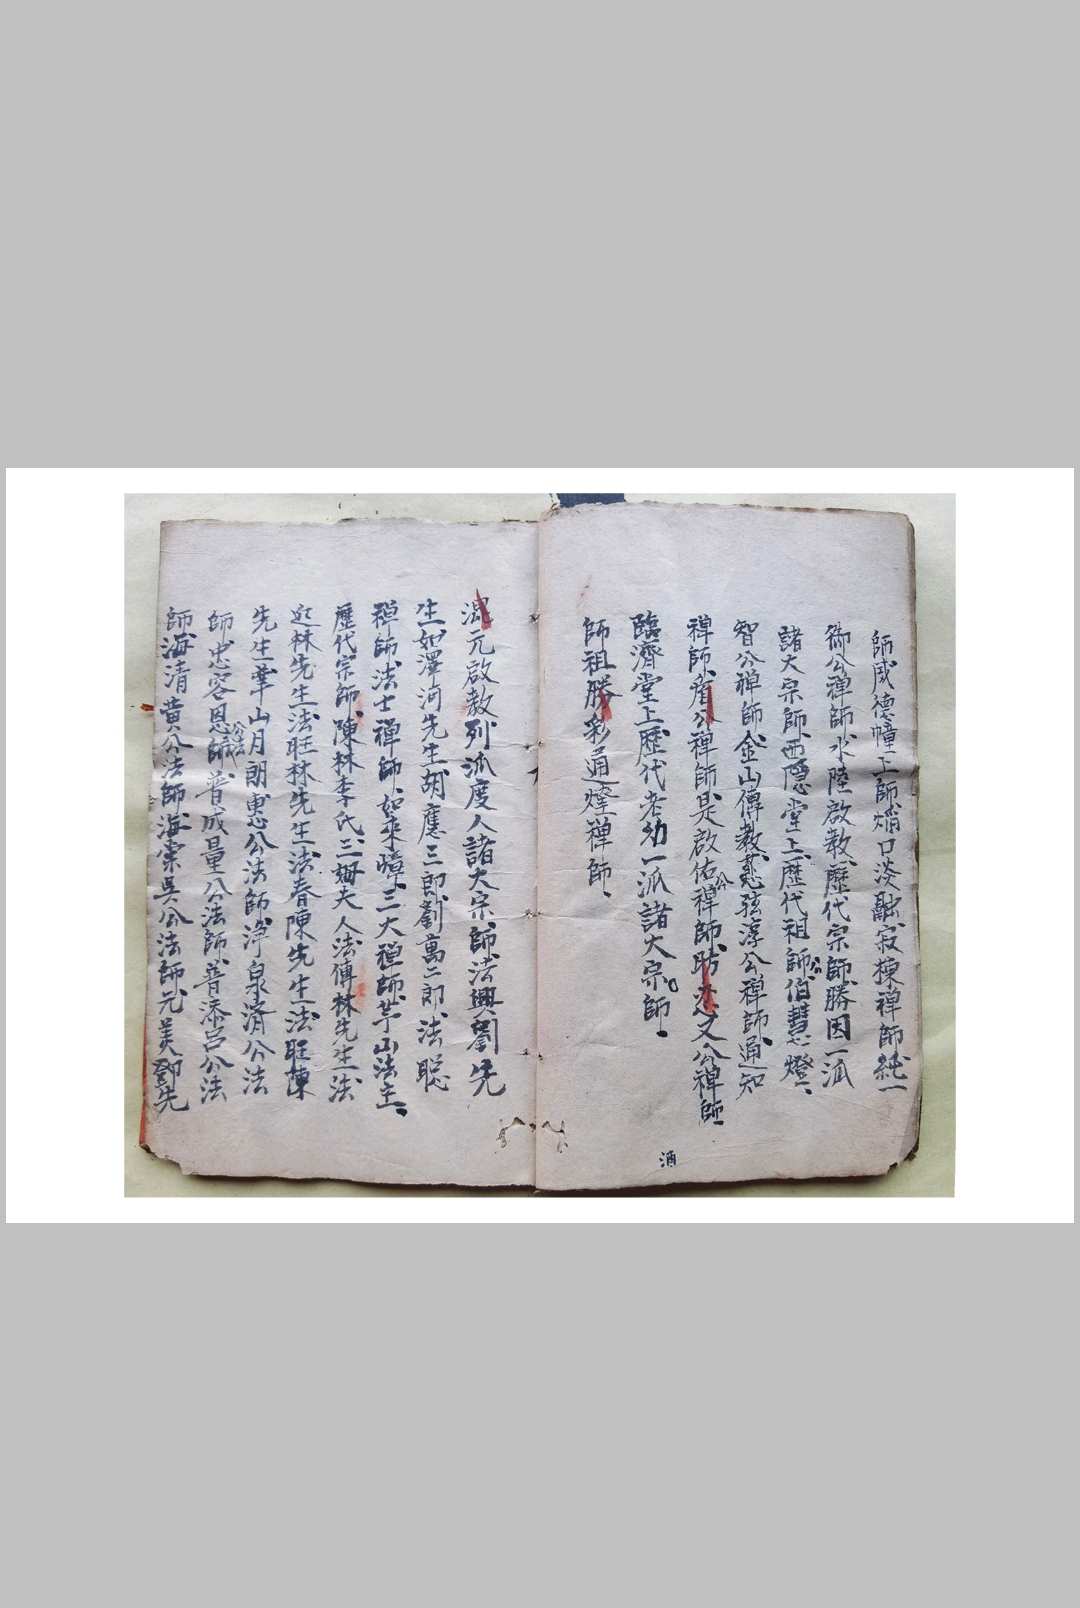 師威德幢上師焰口淡融寂揀禪師純一
御公禪師水陸啟教歷代宗師勝因一派
諸大宗師西隱堂上歷代祖師伯慧燈
智公禪師金山傳教弦淳公禪師通知
禪師公禪師是啟佑公禪師文公禪師
臨濟堂上歷代老幼一派諸大宗師
師祖勝彩通煃禪師
酒
混元啟教列派度人諸大宗師法興劉先
生如澤河先生胡應三郎劉萬二郎法聡
禅師法士禅師如來幛三大禅師芋山法主
歷代宗師陳林李氏三姆夫人法傳林先生法
林先生法旺林先生法春陳先生法旺陳
先生華山月朗惠公法師淨泉濟公法
師忠容恩師普成量公法師普添呂公法
師海清黄公法師海棠吳公法師元美鄧先